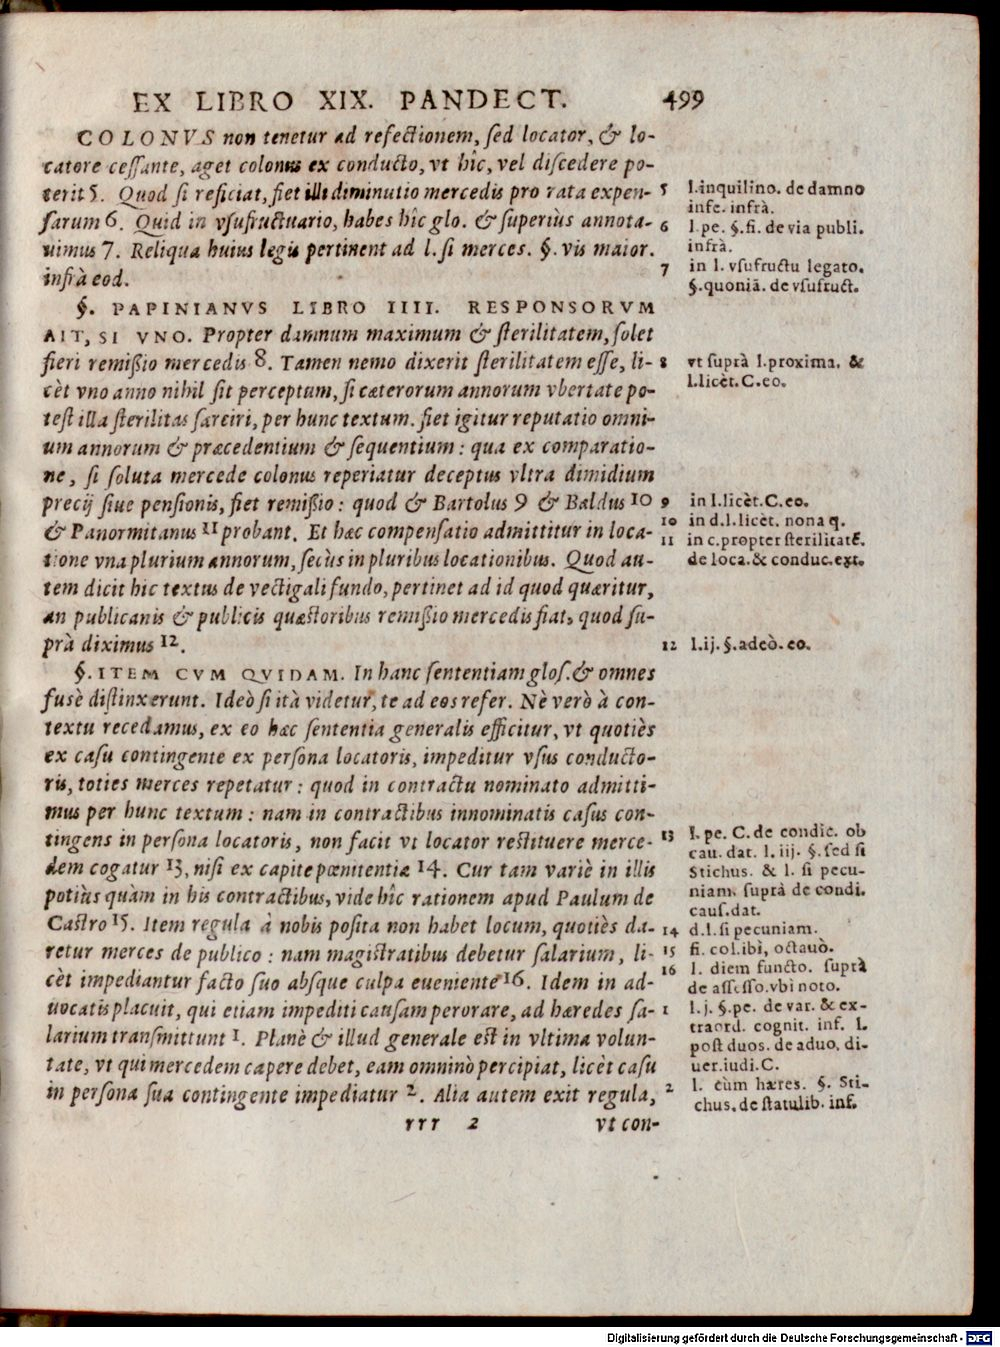 EX LIBRO XIX. PANDECT. 499
COLONVS non tenetur ad refectionem, sed locator, & lo-
catore cessante, aget colonus ex conducto, vt hîc, vel discedere po-
terit 5. Quod si reficiat, fiet illi diminutio mercedis pro rata expen-
sarum 6. Quid in vsufructuario, habes hîc glo. & superiùs annota-
uimus 7. Reliqua huius legis pertinent ad l. si merces. §. vis maior.
infrà eod.
§. PAPINIANVS LIBRO IIII. RESPONSORVM
AIT, SI VNO. Propter damnum maximum & sterilitatem, solet
fieri remißio mercedis 8. Tamen nemo dixerit sterilitatem esse, li-
cèt vno anno nihil sit perceptum, si cæterorum annorum vbertate po-
test illa sterilitas sarciri, per hunc textum. fiet igitur reputatio omni-
um annorum & præcedentium & sequentium: qua ex comparatio-
ne, si soluta mercede colonus reperiatur deceptus vltra dimidium
precij siue pensionis, fiet remißio: quod & Bartolus 9 & Baldus 10
& Panormitanus 11 probant. Et hæc compensatio admittitur in loca-
tione vna plurium annorum, secùs in pluribus locationibus. Quod au-
tem dicit hic textus de vectigali fundo, pertinet ad id quod quæritur,
an publicanis & publicis quæstoribus remißio mercedis fiat, quod su-
prà diximus 12.
§. ITEM CVM QVIDAM. In hanc sententiam glos. & omnes
fusè distinxerunt. Ideò si ità videtur, te ad eos refer. Nè verò à con-
textu recedamus, ex eo hæc sententia generalis efficitur, vt quotiès
ex casu contingente ex persona locatoris, impeditur vsus conducto-
ris, toties merces repetatur: quod in contractu nominato admitti-
mus per hunc textum: nam in contractibus innominatis casus con-
tingens in persona locatoris, non facit vt locator restituere merce-
dem cogatur 13, nisi ex capite pœnitentiæ 14. Cur tam variè in illis
potiùs quàm in his contractibus, vide hîc rationem apud Paulum de
Castro 15. Item regula à nobis posita non habet locum, quotiès da-
retur merces de publico: nam magistratibus debetur salarium, li-
cèt impediantur facto suo absque culpa eueniente 16. Idem in ad-
uocatis placuit, qui etiam impediti causam perorare, ad hæredes sa-
larium transmittunt 1. Planè & illud generale est in vltima volun-
tate, vt qui mercedem capere debet, eam omninò percipiat, licèt casu
in persona sua contingente impediatur 2. Alia autem exit regula,
rrr 2 vt con-
5 l. inquilino. de damno
infe. infrà.
6 l. pe. §. fi. de via publi.
infrà.
7 in l. vsufructu legato.
§. quoniā. de vsufruct.
8 vt suprà l. proxima. &
l. licèt. C. eo.
9 in l. licèt. C. eo.
10 in d. l. licèt. nona q.
11 in c. propter sterilitatē.
de loca. & conduc. ext.
12 l. ij. §. adeò. eo.
13 l. pe. C. de condic. ob
cau. dat. l. iij. §. sed si
Stichus. & l. si pecu-
niam. suprà de condi.
caus. dat.
14 d. l. si pecuniam.
15 fi. col. ibi, octauò.
16 l. diem functo. suprà
de assesso. vbi noto.
1 l. j. §. pe. de var. & ex-
traord. cognit. inf. l.
post duos. de aduo. di-
uer. iudi. C.
2 l. cùm hæres. §. Sti-
chus. de statulib. inf.
Digitalisierung gefördert durch die Deutsche Forschungsgemeinschaft - DFG